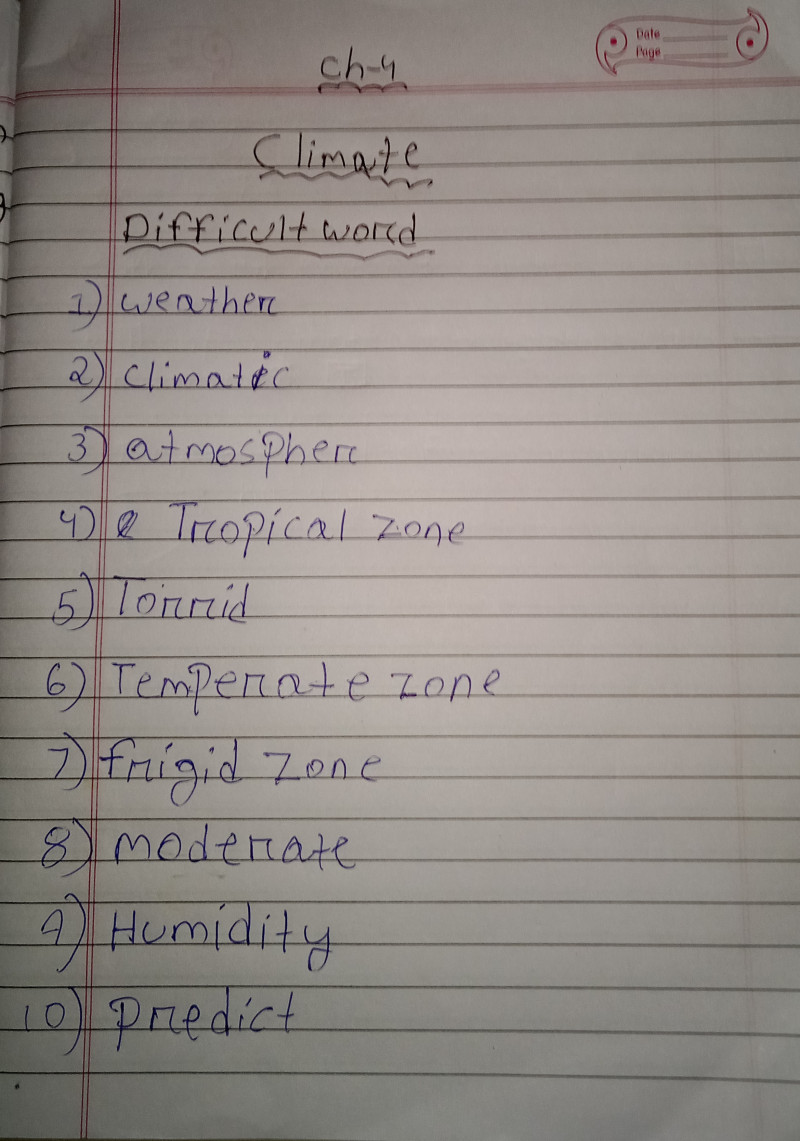 Date
Page
Ch-4
Climate
Difficult word
1) weather
2) climatic
3) atmospher
4) Tropical zone
5) Torrid
6) Temperate zone
7) frigid zone
8) moderate
9) Humidity
10) predict